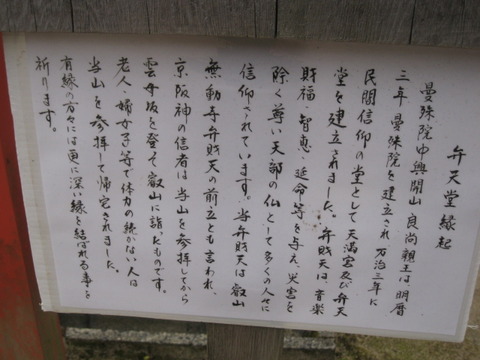 弁天堂縁起
曼殊院中興開山良尚親王は、明暦
三年曼殊院を建立され万治三年に
民間信仰の堂として天満宮及び弁天
堂を建立されました。弁財天は音楽
財福、智恵、延命等を与え、災害を
除く尊い天部の仏として多くの人々に
信仰されています。当弁財天は叡山
無動寺弁財天の前立とも言われ、
京阪神の信者は当山を参拝してから
雲母坂を登って叡山に詣ったものです。
老人、婦女子等で体力の続かない人は
当山を参拝して帰宅されました。
有縁の方々には更に深い縁を結ばれる事を
祈ります。